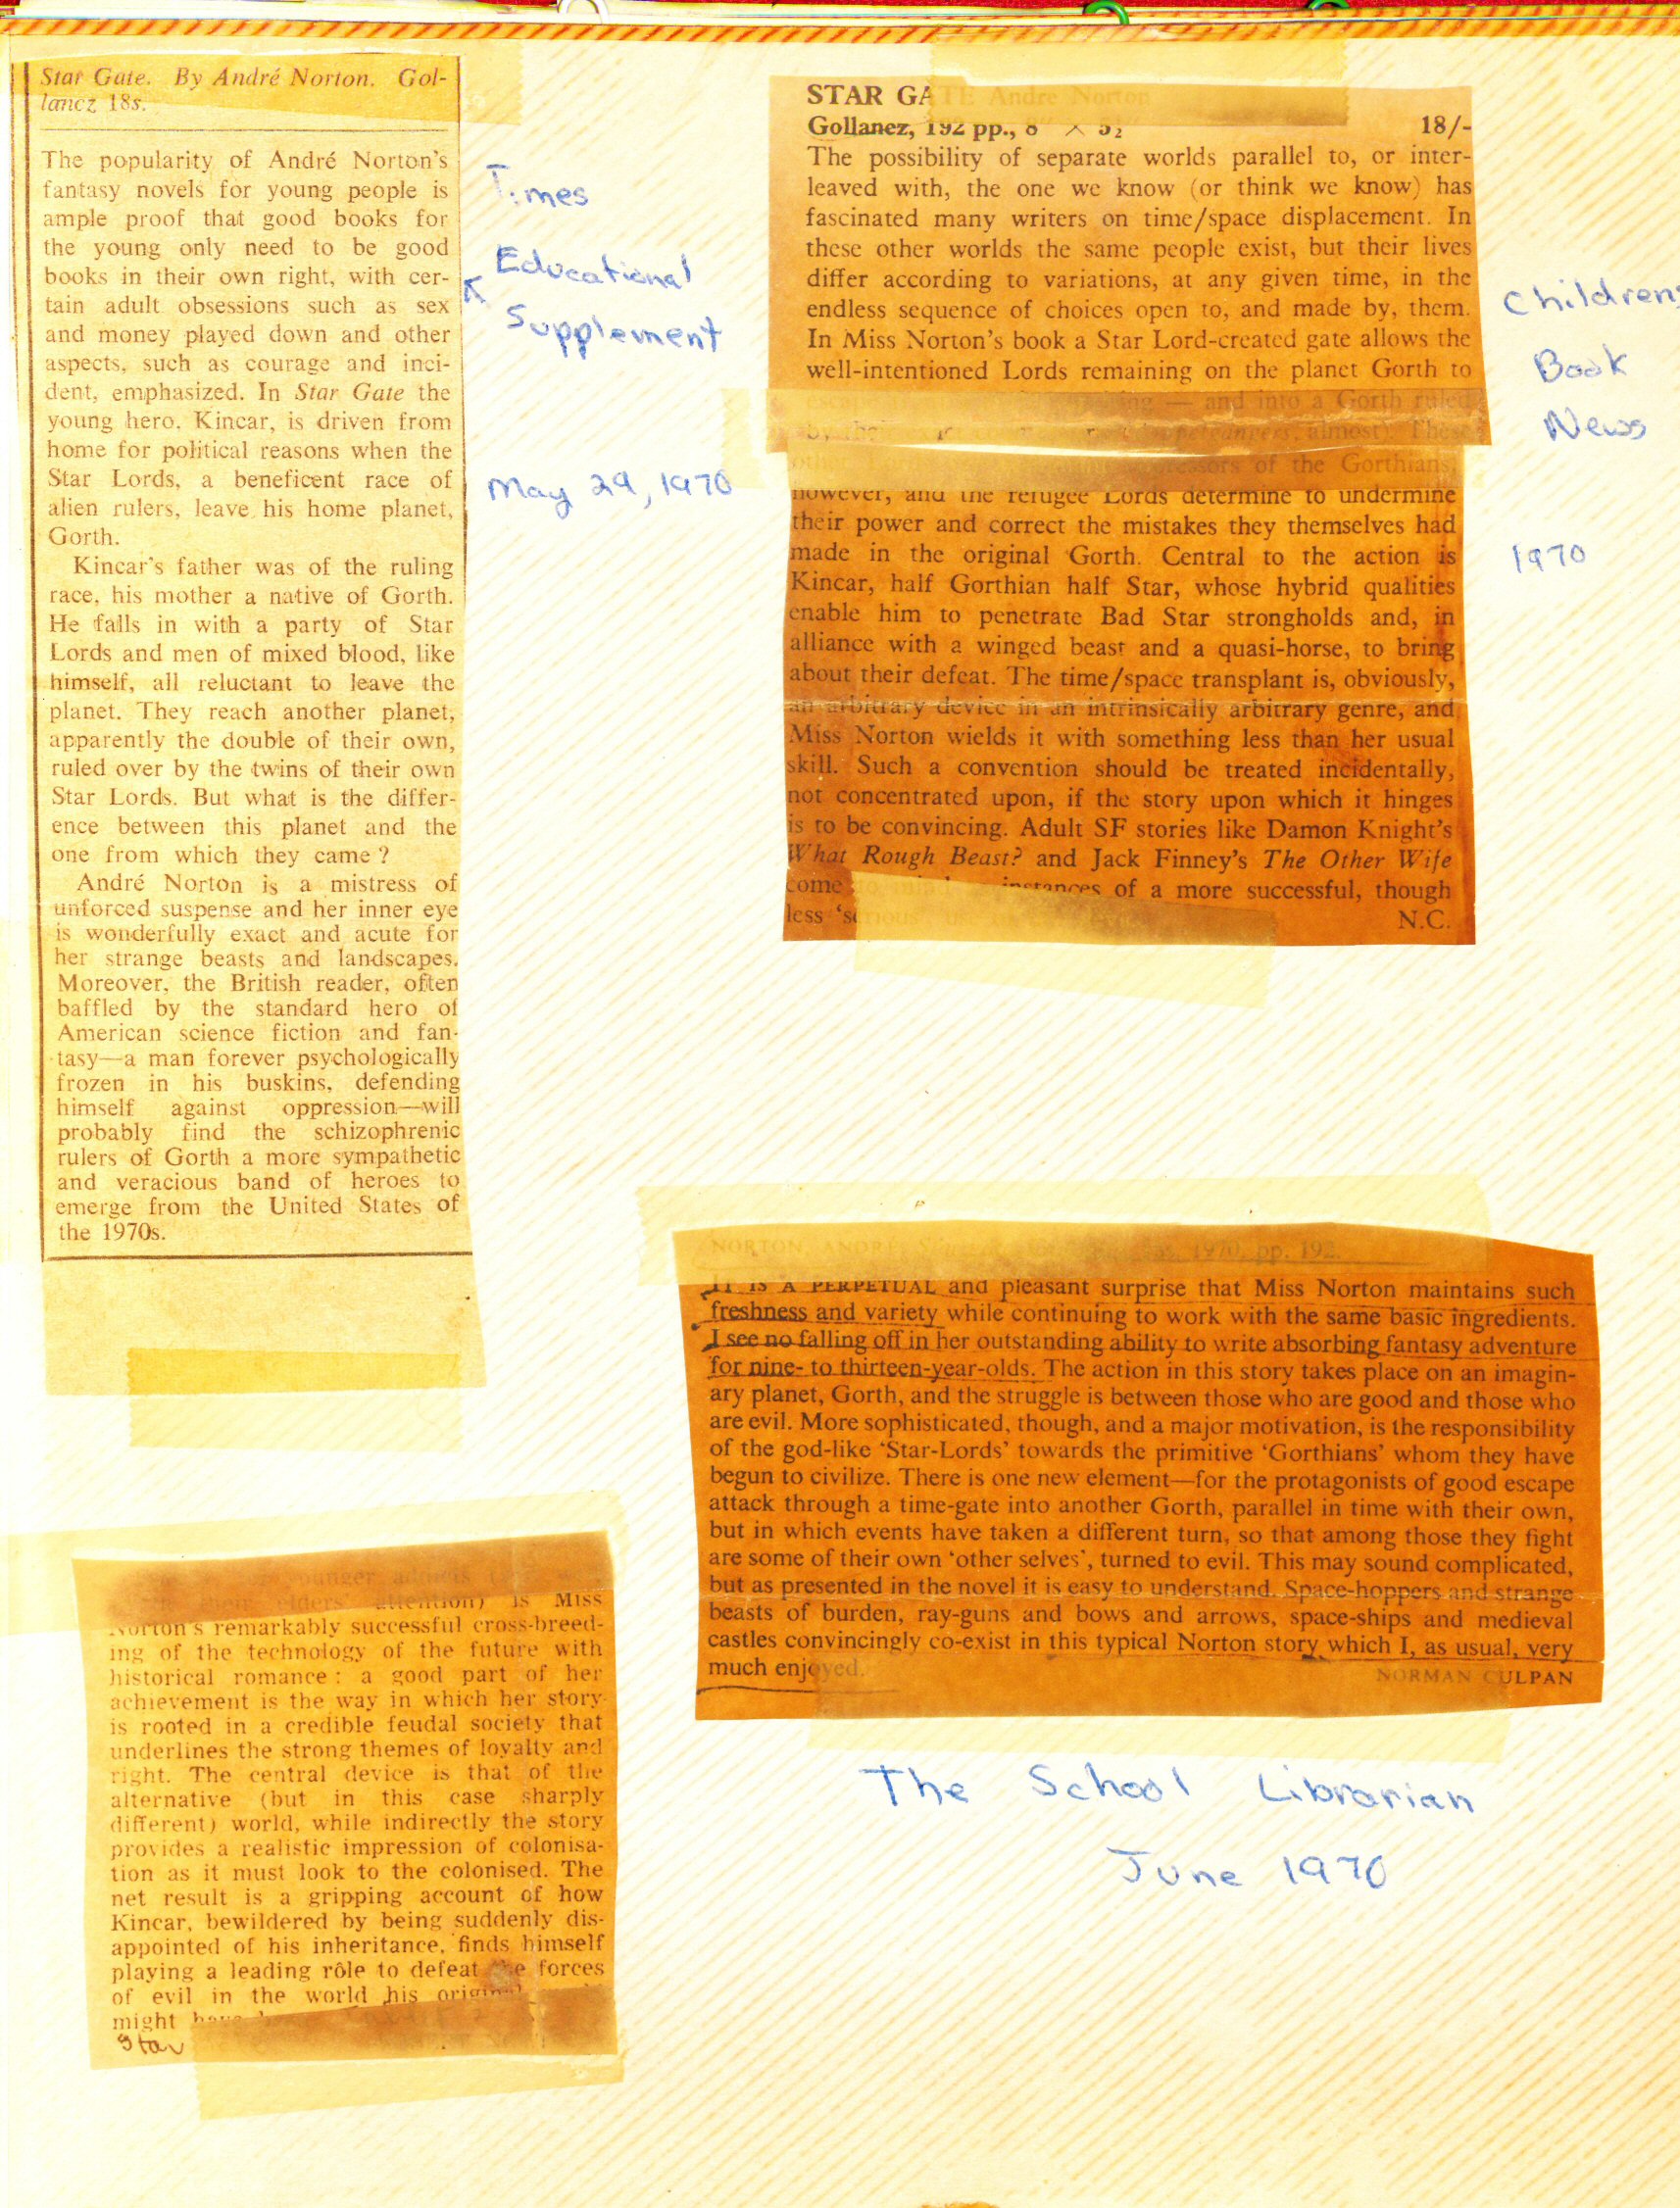 Star Gate. By André Norton. Gol-
lancz 18s.
The popularity of André Norton's
fantasy novels for young people is
ample proof that good books for
the young only need to be good
books in their own right, with cer-
tain adult obsessions such as sex
and money played down and other
aspects, such as courage and inci-
dent, emphasized. In Star Gate the
young hero, Kincar, is driven from
home for political reasons when the
Star Lords, a beneficent race of
alien rulers, leave his home planet,
Gorth.
Kincar's father was of the ruling
race, his mother a native of Gorth.
He falls in with a party of Star
Lords and men of mixed blood, like
himself, all reluctant to leave the
planet. They reach another planet,
apparently the double of their own,
ruled over by the twins of their own
Star Lords. But what is the differ-
ence between this planet and the
one from which they came?
André Norton is a mistress of
unforced suspense and her inner eye
is wonderfully exact and acute for
her strange beasts and landscapes.
Moreover, the British reader, often
baffled by the standard hero of
American science fiction and fan-
tasy—a man forever psychologically
frozen in his buskins, defending
himself against oppression—will
probably find the schizophrenic
rulers of Gorth a more sympathetic
and veracious band of heroes to
emerge from the United States of
the 1970s.
Times
Educational
Supplement
May 29, 1970
STAR GATE Andre Norton
Gollanez, 192 pp., 8 × 5½ 18/-
The possibility of separate worlds parallel to, or inter-
leaved with, the one we know (or think we know) has
fascinated many writers on time/space displacement. In
these other worlds the same people exist, but their lives
differ according to variations, at any given time, in the
endless sequence of choices open to, and made by, them.
In Miss Norton's book a Star Lord-created gate allows the
well-intentioned Lords remaining on the planet Gorth to
— and into a Gorth ruled
almost). These
of the Gorthians,
however, and the refugee Lords determine to undermine
their power and correct the mistakes they themselves had
made in the original Gorth. Central to the action is
Kincar, half Gorthian half Star, whose hybrid qualities
enable him to penetrate Bad Star strongholds and, in
alliance with a winged beast and a quasi-horse, to bring
about their defeat. The time/space transplant is, obviously,
an arbitrary device in an intrinsically arbitrary genre, and
Miss Norton wields it with something less than her usual
skill. Such a convention should be treated incidentally,
not concentrated upon, if the story upon which it hinges
is to be convincing. Adult SF stories like Damon Knight's
What Rough Beast? and Jack Finney's The Other Wife
come to mind instances of a more successful, though
less 'serious' N.C.
Childrens
Book
News
1970
NORTON, ANDRE 1970, pp. 192.
IT IS A PERPETUAL and pleasant surprise that Miss Norton maintains such
freshness and variety while continuing to work with the same basic ingredients.
I see no falling off in her outstanding ability to write absorbing fantasy adventure
for nine- to thirteen-year-olds. The action in this story takes place on an imagin-
ary planet, Gorth, and the struggle is between those who are good and those who
are evil. More sophisticated, though, and a major motivation, is the responsibility
of the god-like 'Star-Lords' towards the primitive 'Gorthians' whom they have
begun to civilize. There is one new element—for the protagonists of good escape
attack through a time-gate into another Gorth, parallel in time with their own,
but in which events have taken a different turn, so that among those they fight
are some of their own 'other selves', turned to evil. This may sound complicated,
but as presented in the novel it is easy to understand. Space-hoppers and strange
beasts of burden, ray-guns and bows and arrows, space-ships and medieval
castles convincingly co-exist in this typical Norton story which I, as usual, very
much enjoyed.
NORMAN CULPAN
The School Librarian
June 1970
younger addicts
their elders' attention) is Miss
Norton's remarkably successful cross-breed-
ing of the technology of the future with
historical romance: a good part of her
achievement is the way in which her story
is rooted in a credible feudal society that
underlines the strong themes of loyalty and
right. The central device is that of the
alternative (but in this case sharply
different) world, while indirectly the story
provides a realistic impression of colonisa-
tion as it must look to the colonised. The
net result is a gripping account of how
Kincar, bewildered by being suddenly dis-
appointed of his inheritance, finds himself
playing a leading rôle to defeat the forces
of evil in the world his original
might have
Star